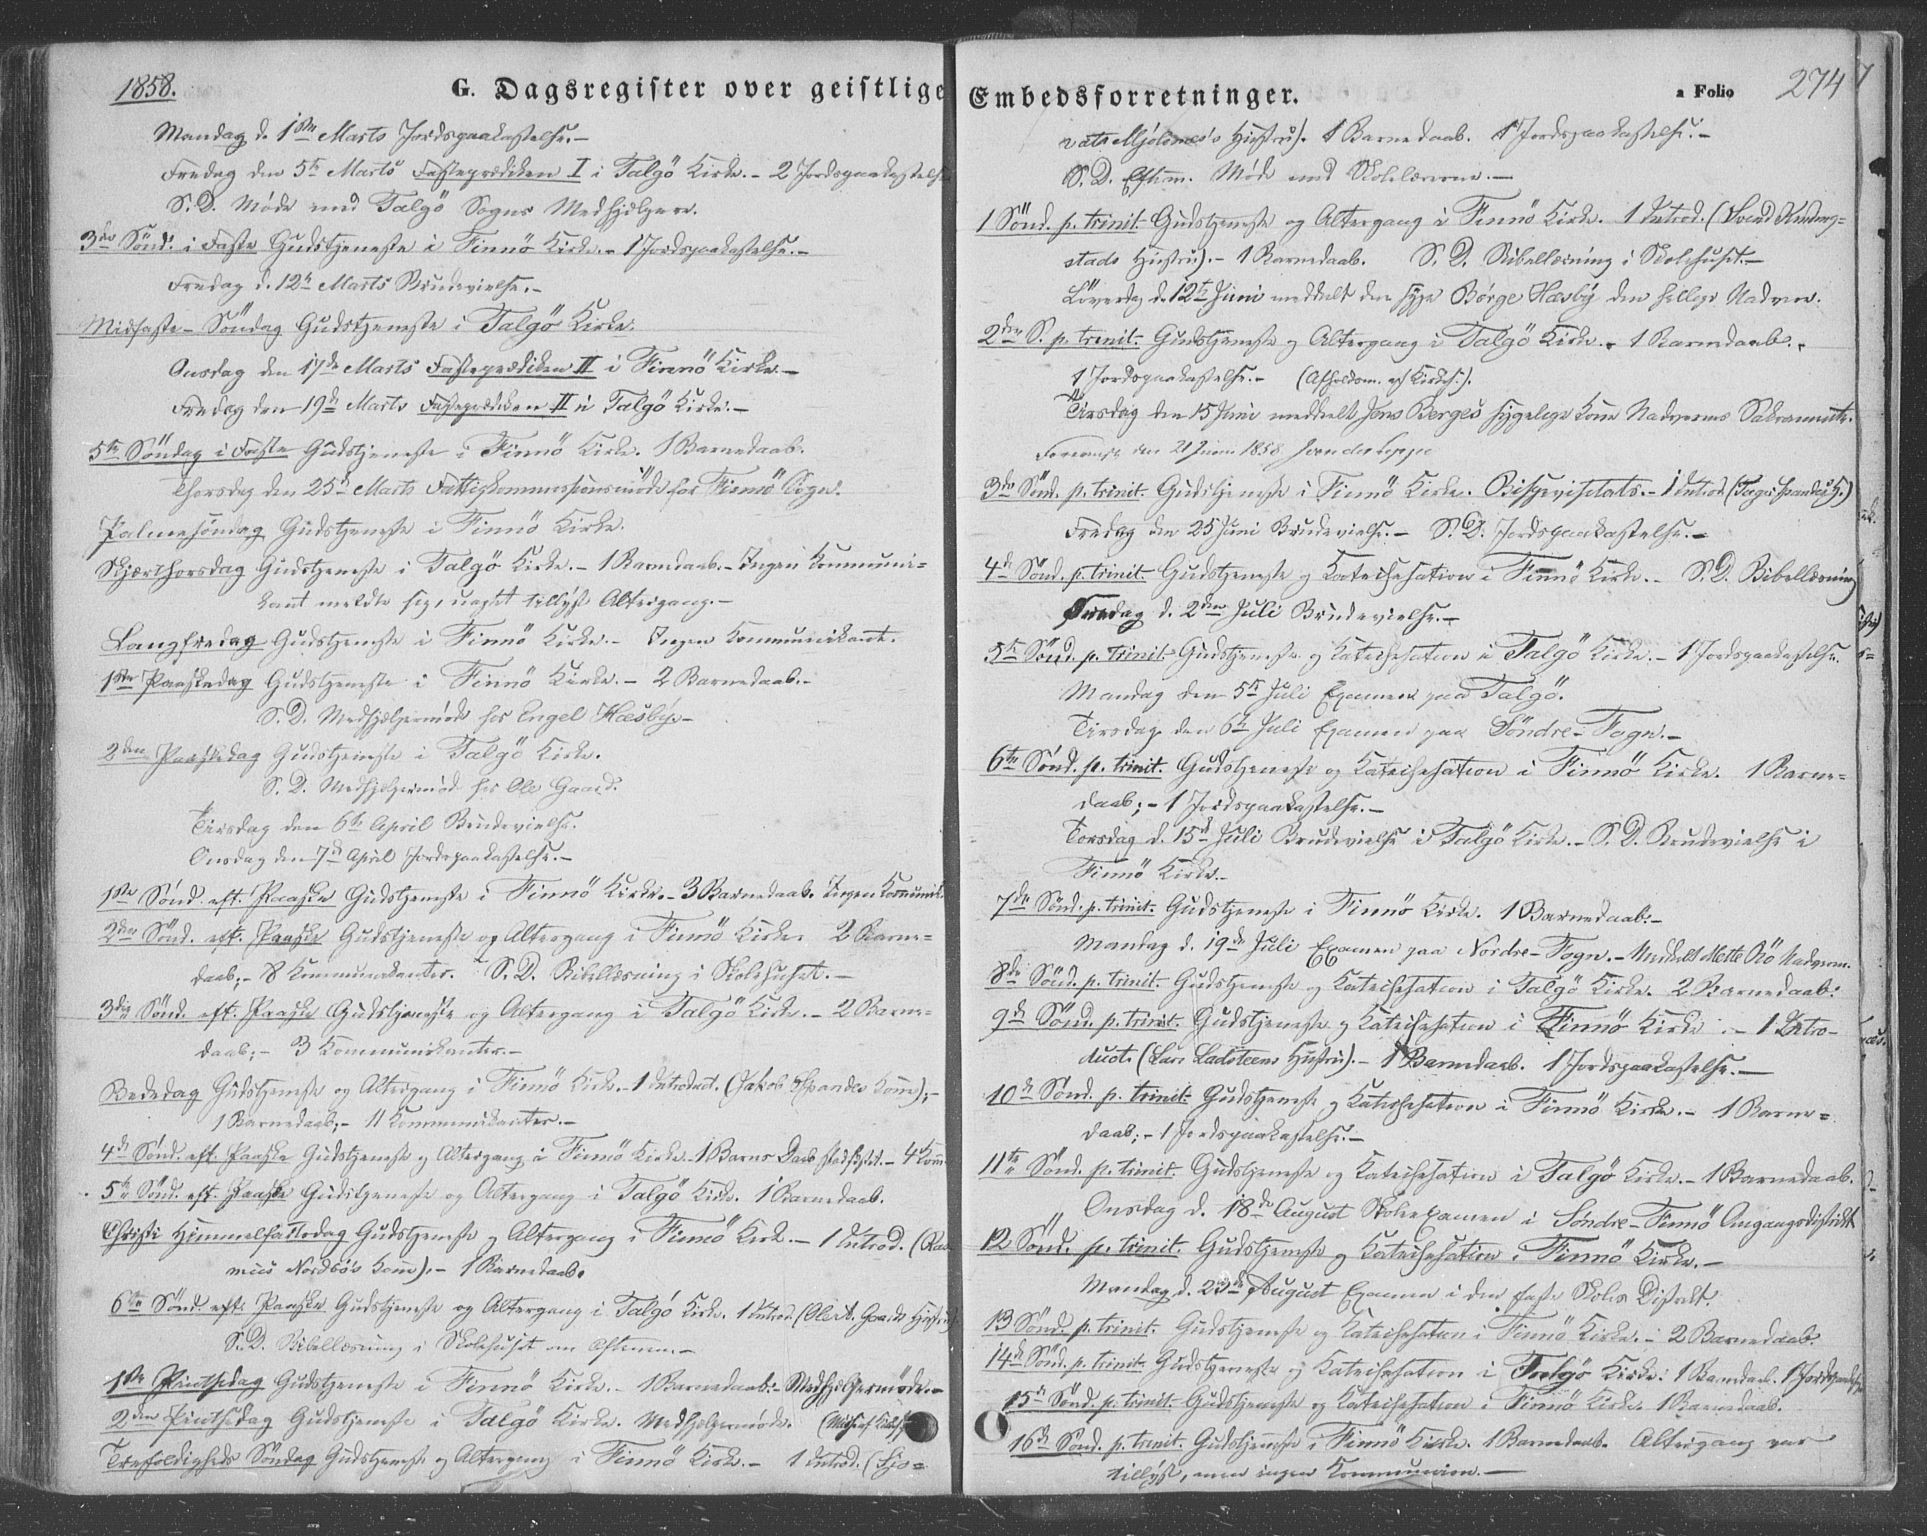 1858.
G. Dagsregister over geistlige
Mandag d. 1ste Marts Jordspaakastelse.-
Fredag den 5te Marts Fasteprædiken I i Talgö Kirke. - 2 Jordspaakastelse
S. D. Møde med Talgö Sogns Medhjelpere.
3die Sönd. i Faste Gudstjeneste i Finnö Kirke. - 1 Jordspaakastelse.-
Fredag d. 12te Marts Brudevielse.-
Midfaste-Söndag Gudstjeneste i Talgö Kirke.
Onsdag den 17de Marts Fasteprædiken II i Finnö Kirke.-
Fredag den 19de Marts Fasteprædiken II i Talgö Kirke.-
5te Söndag i Faste Gudstjeneste i Finnö Kirke. 1 Barnedaab.
Thorsdag den 25de Marts Fattigkommissionsmöde for Finnö Sogn.
Palmesöndag Gudstjeneste i Finnö Kirke.
Skjærthorsdag Gudstjeneste i Talgö Kirke. - 1 Barnedaab. - Ingen Kommuni-
kant meldte sig, uagtet tillyst Altergang.-
Langfredag Gudstjeneste i Finnö Kirke. - Ingen Kommunikant.
1ste Paaskedag Gudstjeneste i Finnö Kirke. - 2 Barnedaab.-
S. D. Medhjelpermöde hos Engel Hæsby.-
2den Paaskedag Gudstjeneste i Talgö Kirke.
S. D. Medhjelpermöde hos Ole Gaard.
Tirsdag den 6te April Brudevielse.
Onsdag den 7de April Jordspaakastelse.-
1ste Sönd. eft. Paaske Gudstjeneste i Finnö Kirke. - 3 Barnedaab. Ingen Kommunik.
2den Sönd. eft. Paaske Gudstjeneste og Altergang i Finnö Kirke. 2 Barne-
daab; - 8 Kommunikanter. S. D. Bibellæsning i Skolehuset.-
3die Sönd. eft. Paaske Gudstjeneste og Altergang i Talgö Kirke. - 2 Barne-
daab; - 3 Kommunikanter.-
Bededag Gudstjeneste og Altergang i Finnö Kirke. - 1 Introduct. (Jakob Spandes Kone);-
1 Barnedaab; - 11 Kommunikanter.-
4de Sönd. eft. Paaske Gudstjeneste og Altergang i Finnö Kirke. - 1 Barns Daab stadfæstet. - 4 Kom.
5te Sönd. eft. Paaske Gudstjeneste og Altergang i Talgö Kirke. 1 Barnedaab.
Christi Himmelfartsdag Gudstjeneste og Altergang i Finnö Kirke. - 1 Introd. (Ras-
mus Nordbö's Kone). - 1 Barnedaab.
6te Sönd. eft. Paaske Gudstjeneste og Altergang i Talgö Kirke. 1 Introd. (Ole Gaards Hustru)
S. D. Bibellæsning i Skolehuset om Aftenen.-
1ste Pintsedag Gudstjeneste i Finnö Kirke. - 1 Barnedaab. - Medhjelpermöde.-
2den Pintsedag Gudstjeneste i Talgö Kirke. Medhjelpermöde.
Trefoldigheds Söndag Gudstjeneste og Altergang i Finnö Kirke. - 1 Introd. (Sjo-
Embedsforretninger.
a Folio 274
vats Mjölsnes's Hustru). 1 Barnedaab. 1 Jordspaakastelse.-
S. D. Efterm. Möde med Skolelærerne.-
1 Sönd. p. trinit. Gudstjeneste og Altergang i Finnö Kirke. 1 Introd. (Svend
stads Hustru). - 1 Barnedaab. S. D. Bibellæsning i Skolehuset.-
Löverdag d. 12te Juni meddelt den syge Börge Hæsby den hellige Nadver.
2den S. p. trinit. Gudstjeneste og Altergang i Talgö Kirke. - 1 Barnedaab.-
1 Jordspaakastelse.-
Tirsdag den 15 Juni meddelt Jens Berges sygelige Kone Nadverens Sakramente.
den 21 Juni 1858.
3die Sönd. p. trinit. Gudstjeneste i Finnö Kirke. Bispevisitats. - 1 Introd.
Fredag den 25 Juni Brudevielse. - S. D. Jordspaakastelse.-
4de Sönd. p. trinit. Gudstjeneste og Katechisation i Finnö Kirke. - S. D. Bibellæsning
Fredag d. 2den Juli Brudevielse.-
5te Sönd. p. trinit. Gudstjeneste og Katechisation i Talgö Kirke. - 1 Jordspaakastelse.
Mandag den 5te Juli Examen paa Talgö.
Tirsdag den 6te Juli Examen paa Söndre-Fogn.-
6te Sönd. p. trinit. Gudstjeneste og Katechisation i Finnö Kirke. 1 Barne-
daab; - 1 Jordspaakastelse.-
Torsdag d. 15de Juli Brudevielse i Talgö Kirke. - S. D. Brudevielse i
Finnö Kirke.-
7de Sönd. p. trinit. Gudstjeneste i Finnö Kirke. 1 Barnedaab.-
Mandag d. 19de Juli Examen paa Nordre-Fogn. - Meddelt Mette Rö Nadveren.
8de Sönd. p. trinit. Gudstjeneste og Katechisation i Talgö Kirke. 2 Barnedaab.
9de Sönd. p. trinit. Gudstjeneste og Katechisation i Finnö Kirke. - 1 Intro-
duct. (Lars Ladsteens Hustru). - 1 Barnedaab. 1 Jordspaakastelse.-
10de Sönd. p. trinit. Gudstjeneste og Katechisation i Finnö Kirke. - 1 Barne-
daab; - 1 Jordspaakastelse.-
11te Sönd. p. trinit. Gudstjeneste og Katechisation i Talgö Kirke. - 1 Barnedaab.
Onsdag d. 18de August Skoleexamen i Söndre-Finnö Omgangsdistrikt
12 Sönd. p. trinit. Gudstjeneste og Katechisation i Finnö Kirke.-
Mandag d. 23de August Examen i den faste Skoles Distrikt.
13 Sönd. p. trinit. Gudstjeneste og Katechisation i Finnö Kirke. - 2 Barnedaab.
14de Sönd. p. trinit. Gudstjeneste og Katechisation i Talgö Kirke. 1 Barnedaab. 1 Jordspaakastelse
15de Sönd. p. trinit. Gudstjeneste og Katechisation i Finnö Kirke. 1 Barnedaab.
16de Sönd. p. trinit. Gudstjeneste i Finnö Kirke. 1 Barnedaab. Altergang var
tillyst, men ingen Kommunion.-